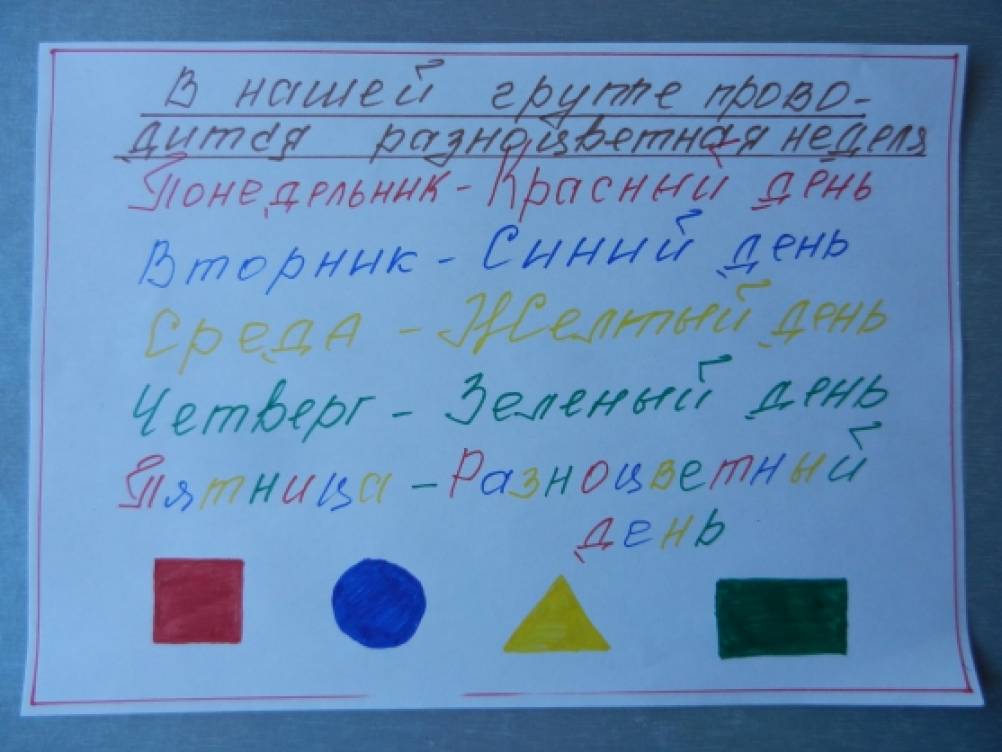 В нашей группе прово-
дится разноцветная неделя
Понедельник - Красный день
Вторник - Синий день
Среда - Желтый день
Четверг - Зеленый день
Пятница - Разноцветный
день